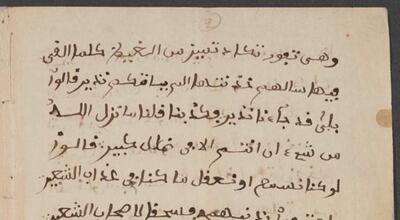 وهى تفور تكاد تميز من الغيظ كلما القى
فيها سالهم خزنتها الم ياتكم نذير قالوا
بلى قد جآءنا نذير فكذبنا قلنا ما نزل الله
من شىء ان انتم الا فى ضلل كبير قالوا
لو كنا نسمع او نعقل ما كنا فى عذاب السعير
بذنبهم فسحقا لاصحاب السعير